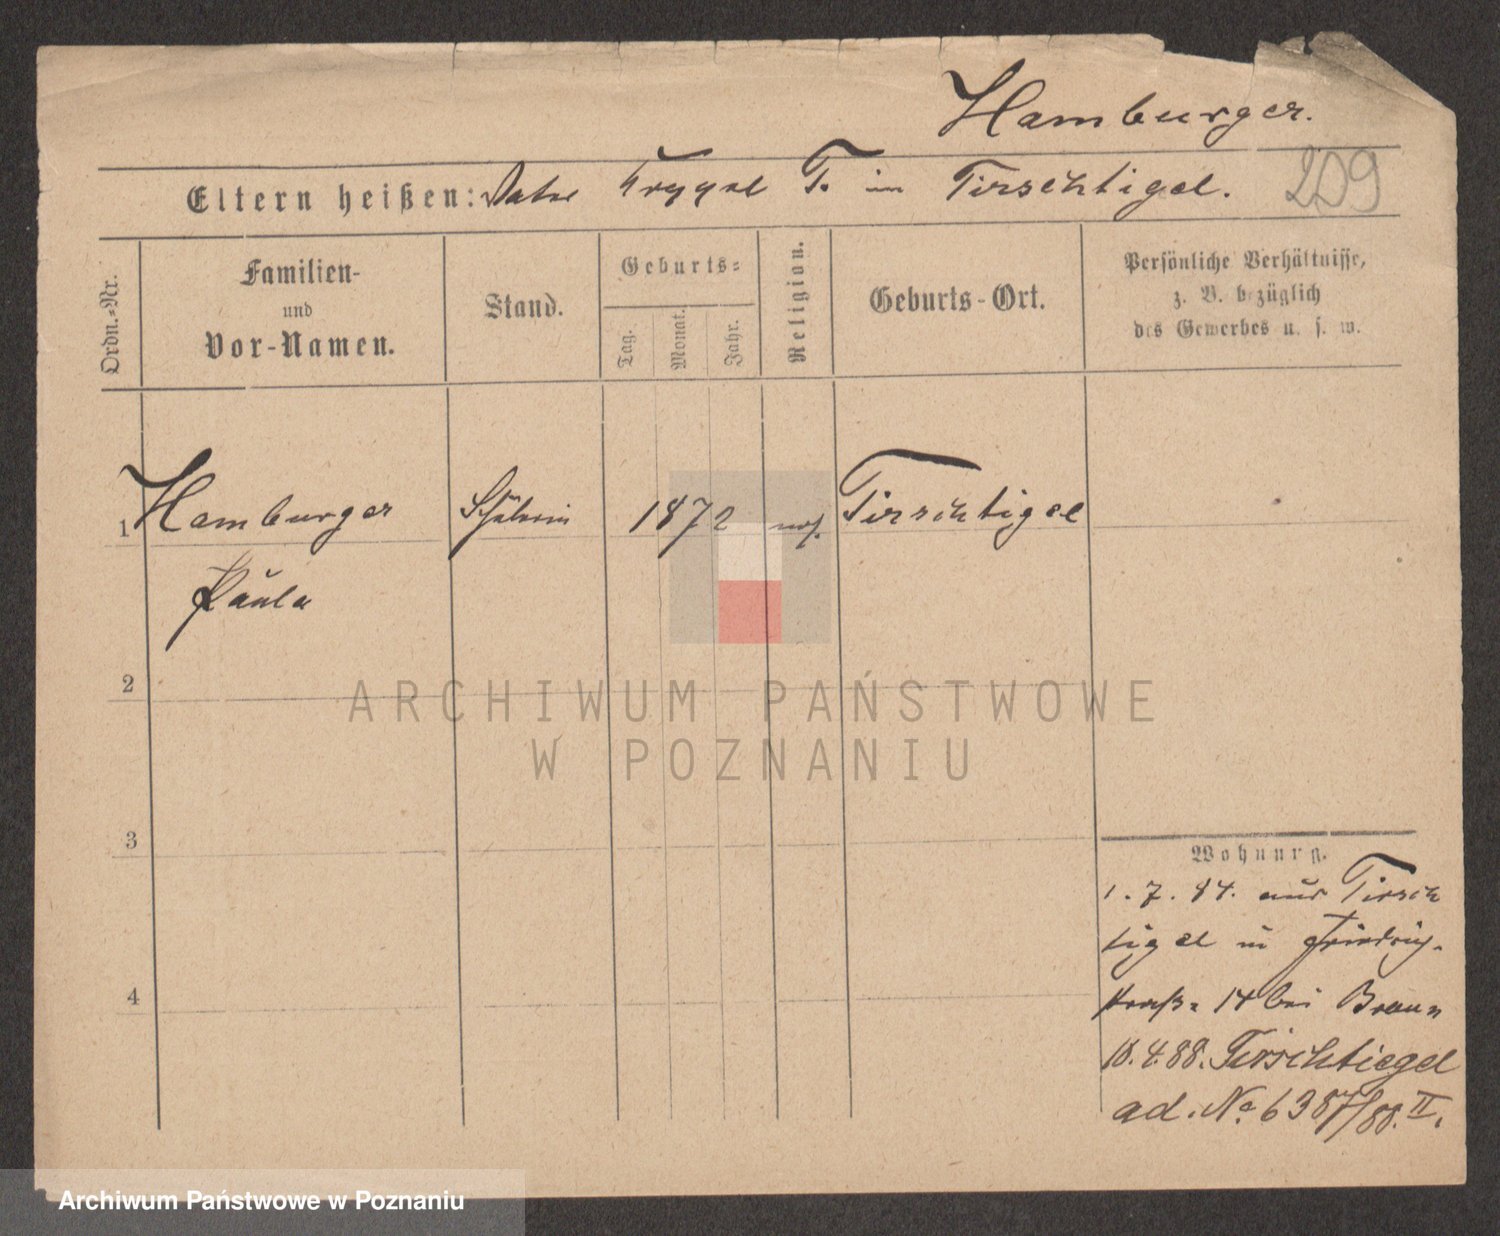 Hamburger.
Eltern heißen: Vater T. in Tirschtigel. 209
Ordn.=Nr.
Familien-
und
Vor-Namen.
Stand.
Geburts=
Tag.
Monat.
Jahr.
Religion.
Geburts-Ort.
Persönliche Verhältnisse,
z. B. bezüglich
des Gewerbes u. s. w.
1 Hamburger Schülerin 1872 mos. Tirschtigel
Paula
2
3
4
Wohnung.
1. 7. 84. aus Tirsch
tigel in Friedrich-
straße 14 bei Braun
10. 4. 88. Tirschtiegel
ad. No 6387/88. II.
ARCHIWUM PAŃSTWOWE
W POZNANIU
Archiwum Państwowe w Poznaniu